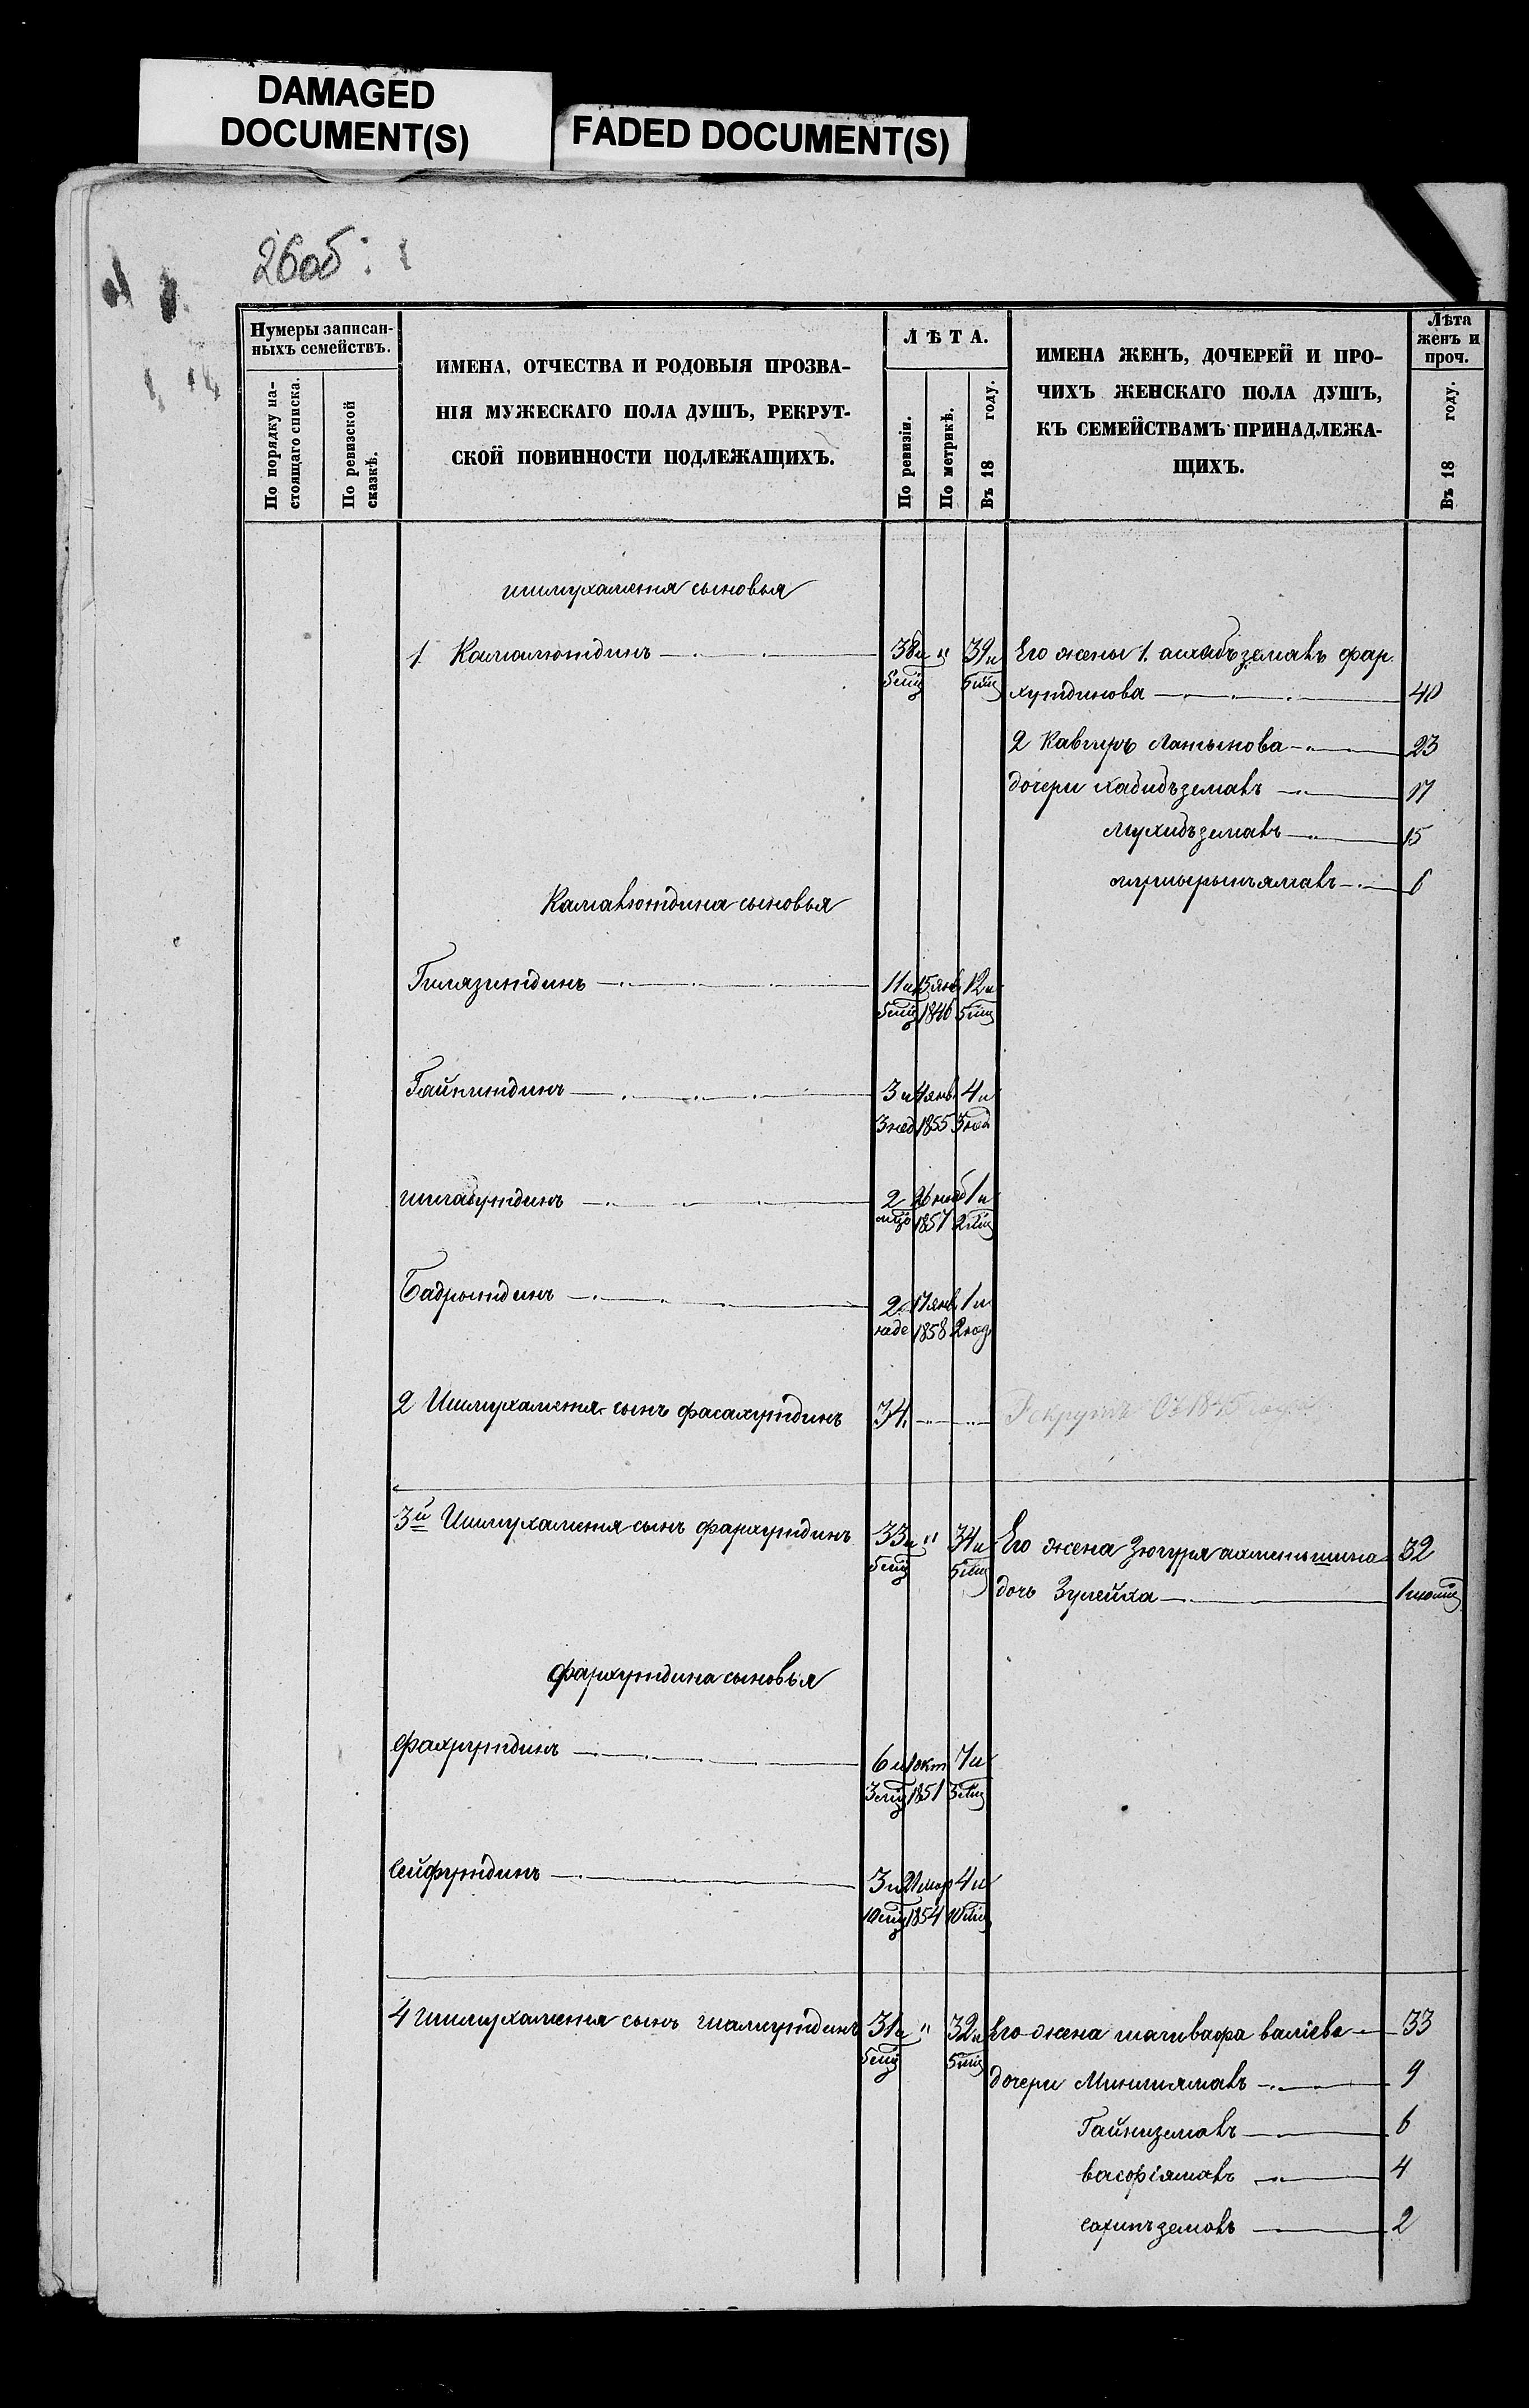 DAMAGED
DOCUMENT(S)
FADED DOCUMENT(S)
26об:
Нумеры записан-
ныхъ семействъ.
По порядку на-
стоящаго списка.
По ревизской
сказкѣ.
ИМЕНА, ОТЧЕСТВА И РОДОВЫЯ ПРОЗВА-
НІЯ МУЖЕСКАГО ПОЛА ДУШЪ, РЕКРУТ-
СКОЙ ПОВИННОСТИ ПОДЛЕЖАЩИХЪ.
ЛѢТА.
По ревизіи.
По метрикѣ.
Въ 18 году.
ИМЕНА ЖЕНЪ, ДОЧЕРЕЙ И ПРО-
ЧИХЪ ЖЕНСКАГО ПОЛА ДУШЪ,
КЪ СЕМЕЙСТВАМЪ ПРИНАДЛЕЖА-
ЩИХЪ.
Лѣта
женъ и
проч.
Въ 18 году.
ишмухаметя сыновья
1. Камалютдинъ 38 и " 39 и Его жены 1. фар
5 мѣц 5 мѣц хутдинова 40
2 Латыпова 23
дочери хабибъземалъ 17
Мухибъземалъ 15
6
Камалютдина сыновья
Гилязитдинъ 11 и 15 янв 12 и
5 мѣц 1846 5 мѣц
Гайнитдинъ 3 и 4 янв 4 и
3 нед 1855 3 нед
шигабутдинъ 2 26 нояб 1 и
мѣц 1857 2 мѣц
Бадрытдинъ 2 17 янв 1 и
неде 1858 2 нед
2 Ишмухаметя сынъ фасахутдинъ 34. Рекрутъ съ 1845 года
3й Ишмухаметя сынъ фархутдинъ 33 и " 34 и Его жена Зюгуря ахметьшина 32
5 мѣц 5 мѣц дочь Зулейха
фархутдина сыновья
Фахрутдинъ 6 и 1 окт 7 и
3 мѣц 1851 3 мѣц
Сейфутдинъ 3 и 21 мар 4 и
10 мѣц 1854 10 мѣц
4 ишмухаметя сынъ шамсутдинъ 31 и " 32 и Его жена шагивафа валіева 33
5 мѣц 5 мѣц дочери Мингиямалъ 9
Гайниземалъ 6
васфіямалъ 4
сахипъземалъ 2